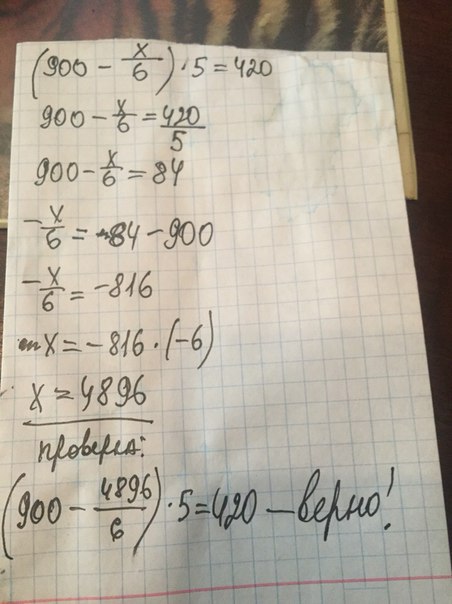 (900 - x/6) · 5 = 420
900 - x/6 = 420/5
900 - x/6 = 84
- x/6 = 84 - 900
- x/6 = -816
x = -816 · (-6)
x = 4896
проверка:
(900 - 4896/6) · 5 = 420 — верно!